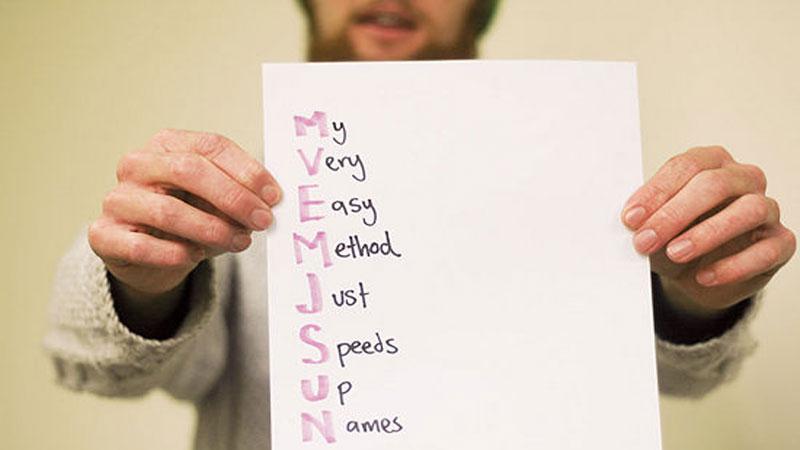 My
Very
Easy
Method
Just
Speeds
Up
Names